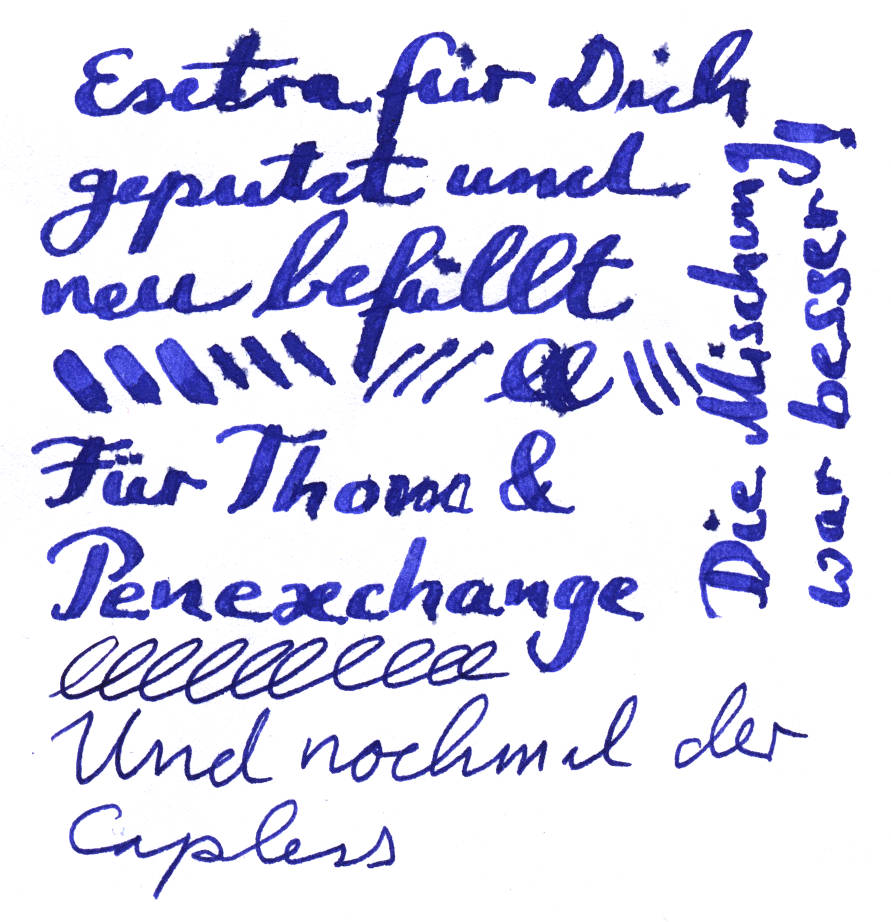 Esetra für Dich
geputzt und
neu befüllt
Für Thom &
Penexchange
Und nochmal der
Capless
Die Mischung
war besser!